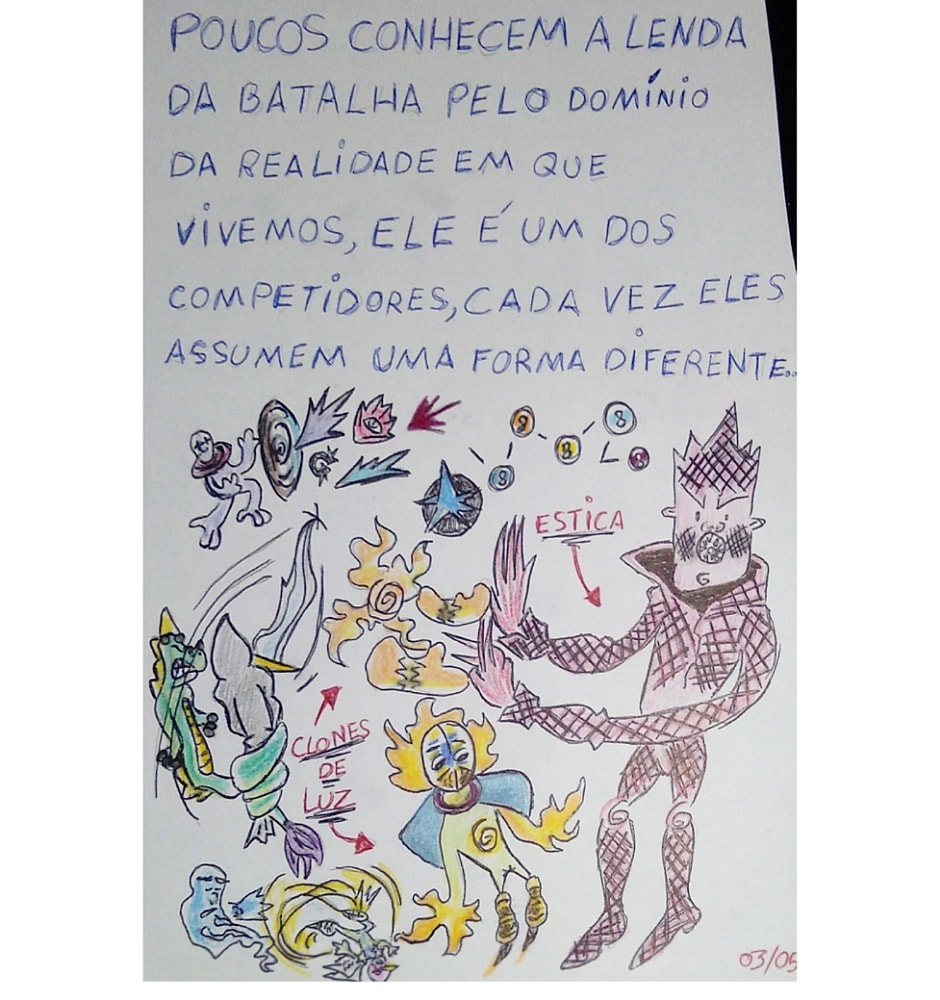 POUCOS CONHECEM A LENDA
DA BATALHA PELO DOMÍNIO
DA REALIDADE EM QUE
VIVEMOS, ELE É UM DOS
COMPETIDORES, CADA VEZ ELES
ASSUMEM UMA FORMA DIFERENTE..
8
8
8
8
8
ESTICA
CLONES
DE
LUZ
03/05